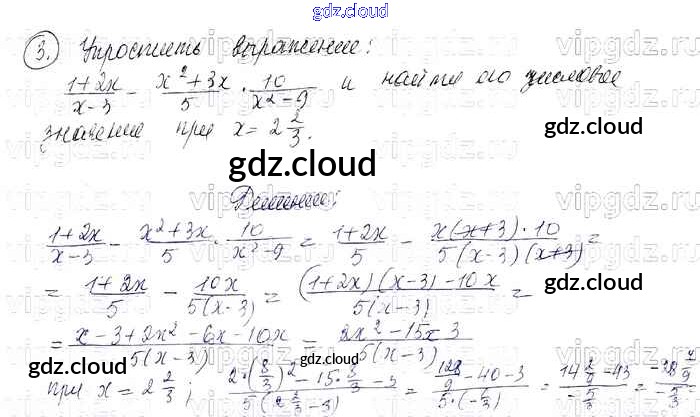 gdz.cloud
3. Упростить выражение:
\frac{1+2x}{x-3} - \frac{x^2+3x}{5} \cdot \frac{10}{x^2-9} и найти его числовое
значение при x = 2\frac{2}{3}.
gdz.cloud
gdz.cloud
Решение:
\frac{1+2x}{x-3} - \frac{x^2+3x}{5} \cdot \frac{10}{x^2-9} = \frac{1+2x}{5} - \frac{x(x+3) \cdot 10}{5(x-3)(x+3)} =
= \frac{1+2x}{5} - \frac{10x}{5(x-3)} = \frac{(1+2x)(x-3)-10x}{5(x-3)} =
gdz.cloud
= \frac{x-3+2x^2-6x-10x}{5(x-3)} = \frac{2x^2-15x-3}{5(x-3)}
gdz.cloud
gdz.cloud
при x = 2\frac{2}{3};